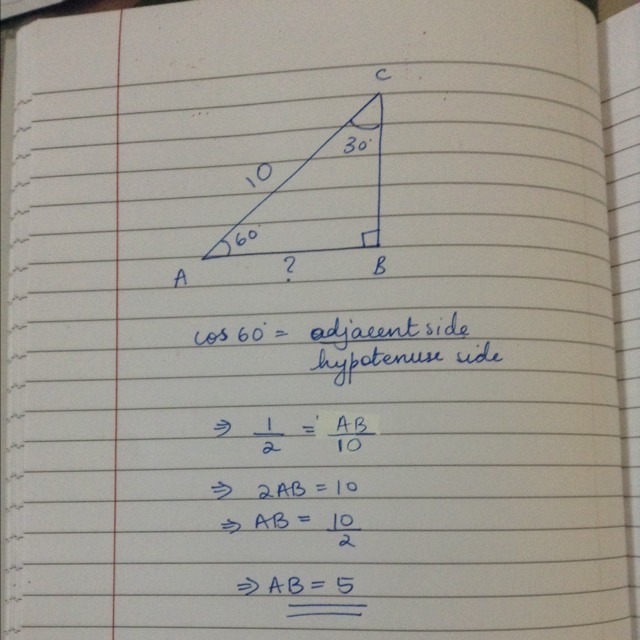 C
30°
10
60°
A
?
B
cos 60° = adjacent side
hypotenuse side
⇒ 1/2 = AB/10
⇒ 2AB = 10
⇒ AB = 10/2
⇒ AB = 5